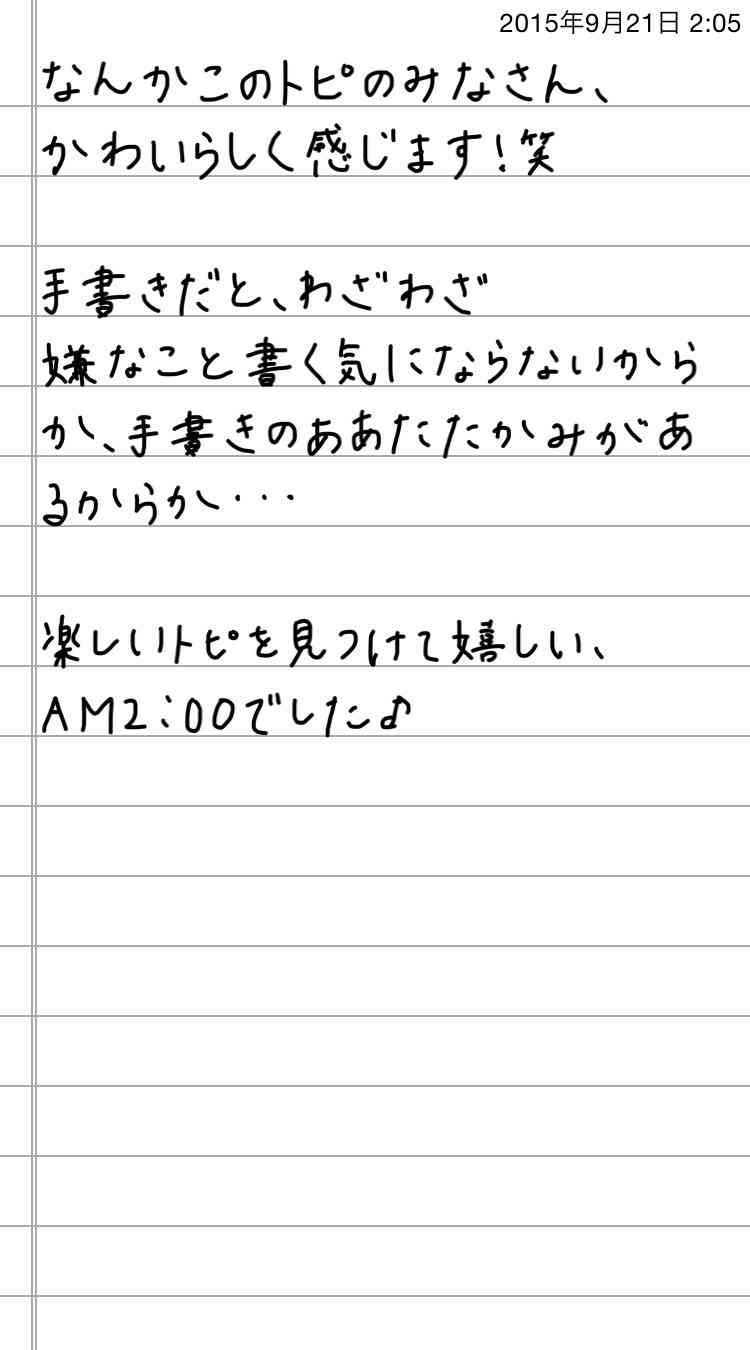 2015年9月21日 2:05
なんかこのトピのみなさん、
かわいらしく感じます!笑
手書きだと、わざわざ
嫌なこと書く気にならないから
か、手書きのああたたかみがあ
るからか・・・
楽しいトピを見つけて嬉しい、
AM2:00でした♪